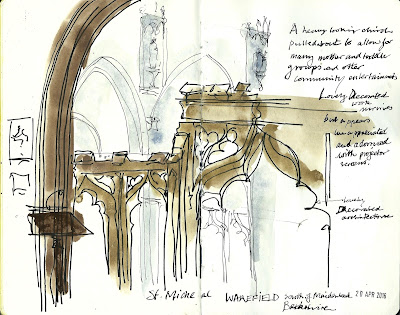 A heavy looking church
pulled about to allow for
many mother and toddler
groups and other
community entertainments
Lovely Decorated
work
survives
but appears
unappreciated
and adorned
with projector
screens!
Lovely
Decorated
architecture
St. Michael WARFIELD south of Maidenhead 20 APR 2016
Berkshire